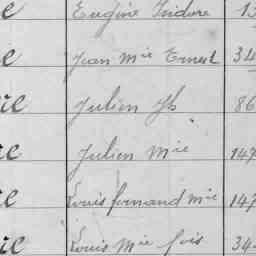 e Eugène Isidore 13
e Jean Mie Ernest 34
ie Julien Jh 86
e Julien Mie 147
e Louis fernand Mie 147
ie Louis Mie fois 34